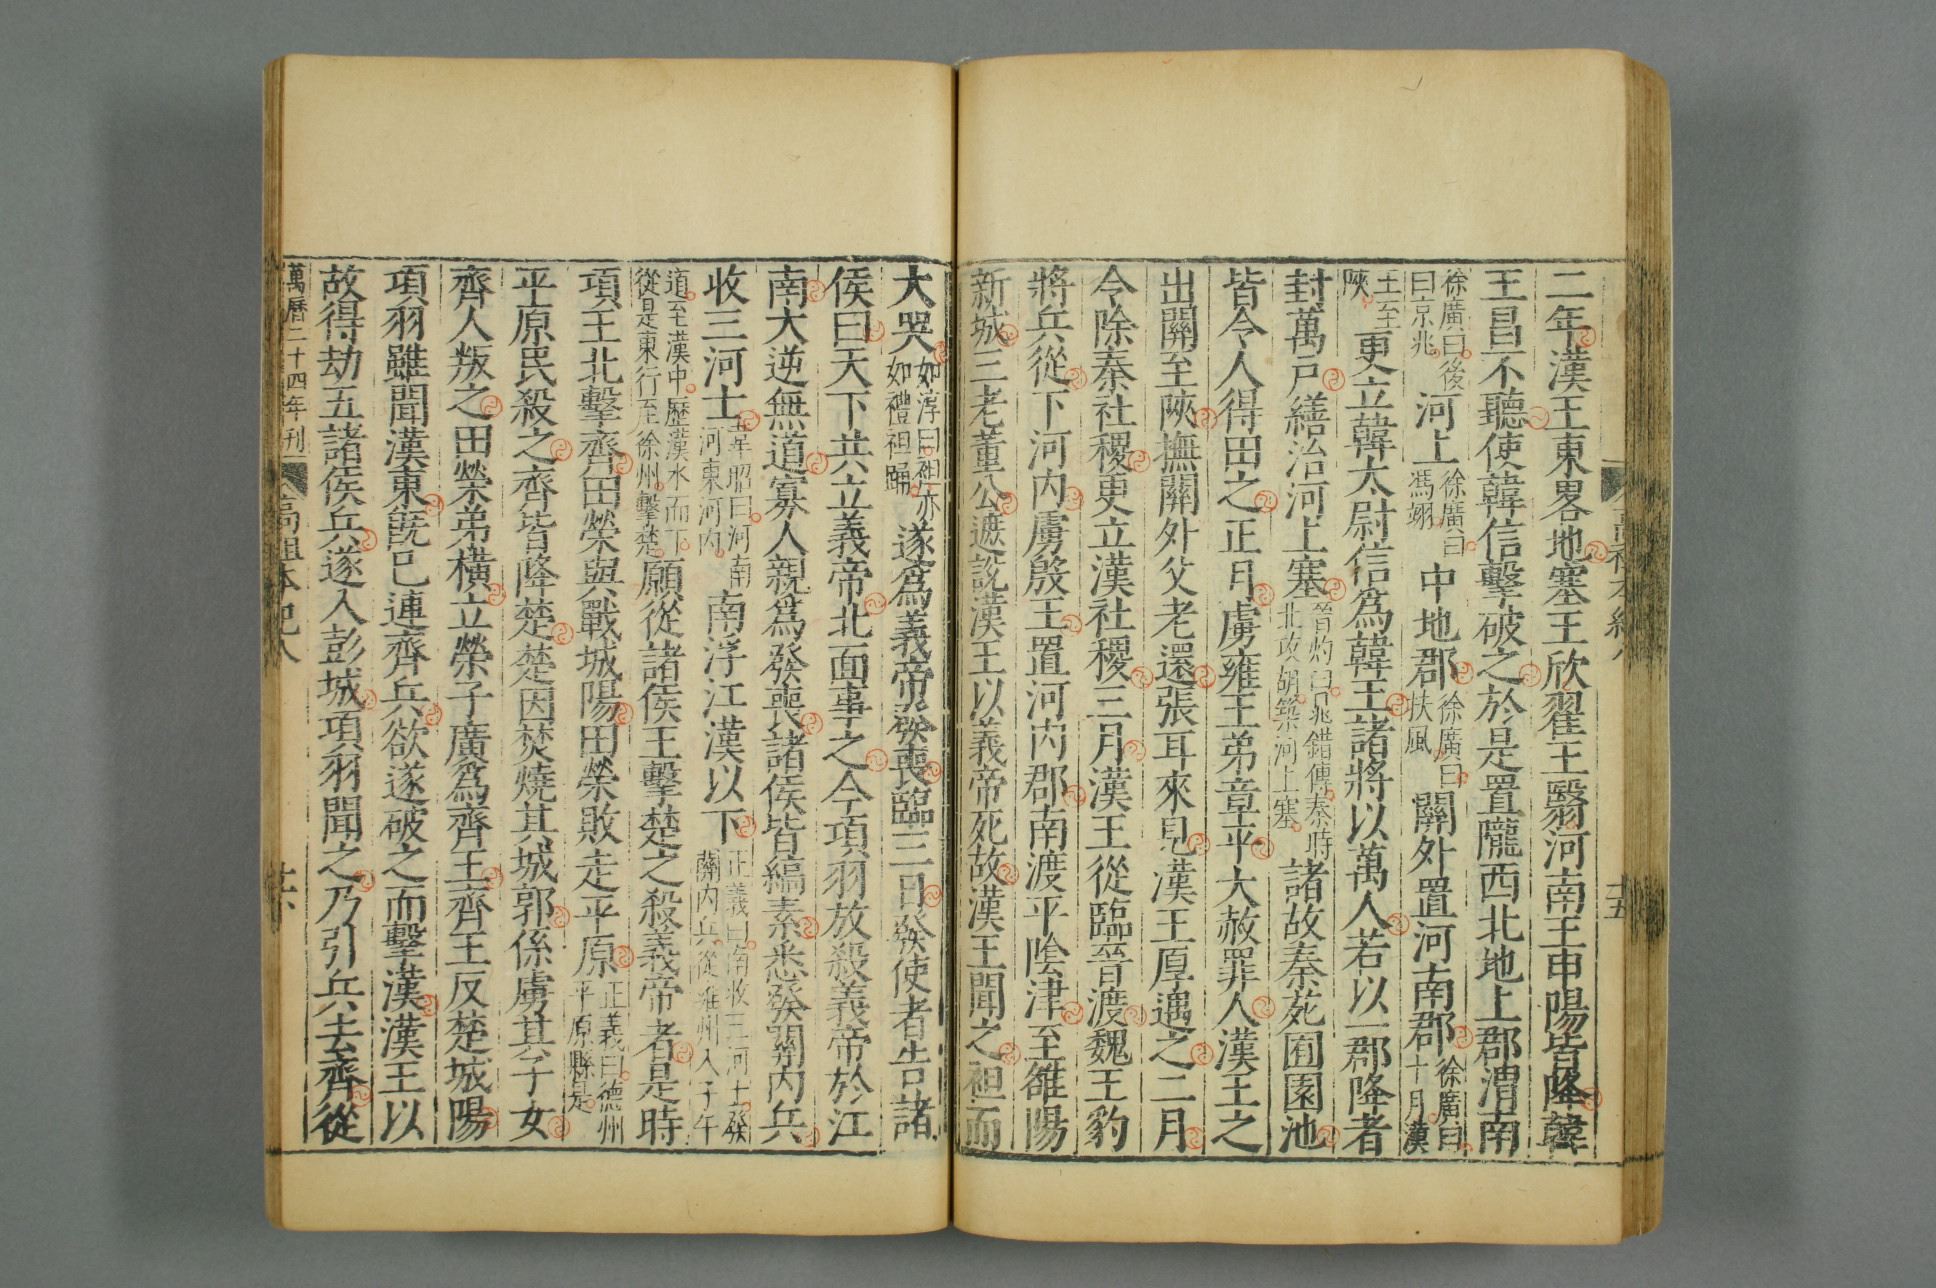 二年漢王東畧地塞王欣翟王翳河南王申陽皆降韓
王昌不聽使韓信擊破之於是置隴西北地上郡渭南
徐廣曰後曰京兆河上徐廣曰馮翊中地郡徐廣曰扶風關外置河南郡徐廣曰十月漢
王至陝更立韓太尉信爲韓王諸將以萬人若以一郡降者
封萬戶繕治河上塞晉灼曰晁錯傳秦時北攻胡築河上塞諸故秦苑囿園池
皆令人得田之正月虜雍王弟章平大赦罪人漢王之
出關至陝撫關外父老還張耳來見漢王厚遇之二月
令除秦社稷更立漢社稷三月漢王從臨晉渡魏王豹
將兵從下河內虜殷王置河內郡南渡平陰津至雒陽
新城三老董公遮說漢王以義帝死故漢王聞之袒而
大哭如淳曰袒亦如禮袒踊遂爲義帝發喪臨三日發使者告諸
侯曰天下共立義帝北面事之今項羽放殺義帝於江
南大逆無道寡人親爲發喪諸侯皆縞素悉發關內兵
收三河士韋昭曰河南河東河內南浮江漢以下正義曰南收三河士發關內兵從雍州入子午
道至漢中歷漢水而下從是東行至徐州擊楚願從諸侯王擊楚之殺義帝者是時
項王北擊齊田榮與戰城陽田榮敗走平原正義曰德州平原縣是
平原民殺之齊皆降楚楚因焚燒其城郭係虜其子女
齊人叛之田榮弟橫立榮子廣爲齊王齊王反楚城陽
項羽雖聞漢東旣已連齊兵欲遂破之而擊漢漢王以
故得劫五諸侯兵遂入彭城項羽聞之乃引兵去齊從
萬曆二十四年刊 高祖本紀八